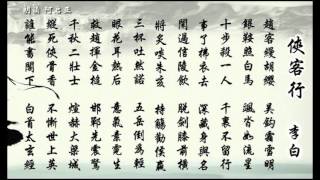 俠客行 李白
趙客縵胡纓 吳鉤霜雪明
銀鞍照白馬 颯沓如流星
十步殺一人 千里不留行
事了拂衣去 深藏身與名
閑過信陵飲 脫劍膝前橫
將炙啖朱亥 持觴勸侯嬴
三杯吐然諾 五岳倒為輕
眼花耳熱後 意氣素霓生
救趙揮金槌 邯鄲先震驚
千秋二壯士 烜赫大梁城
縱死俠骨香 不慚世上英
誰能書閣下 白首太玄經